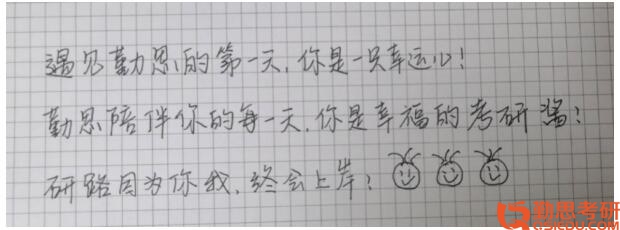 遇见勤思的第一天,你是一只幸运心!
勤思陪伴你的每一天,你是幸福的考研酱!
研路因为你我,终会上岸!
勤思考研
QISIKAOYAN.COM